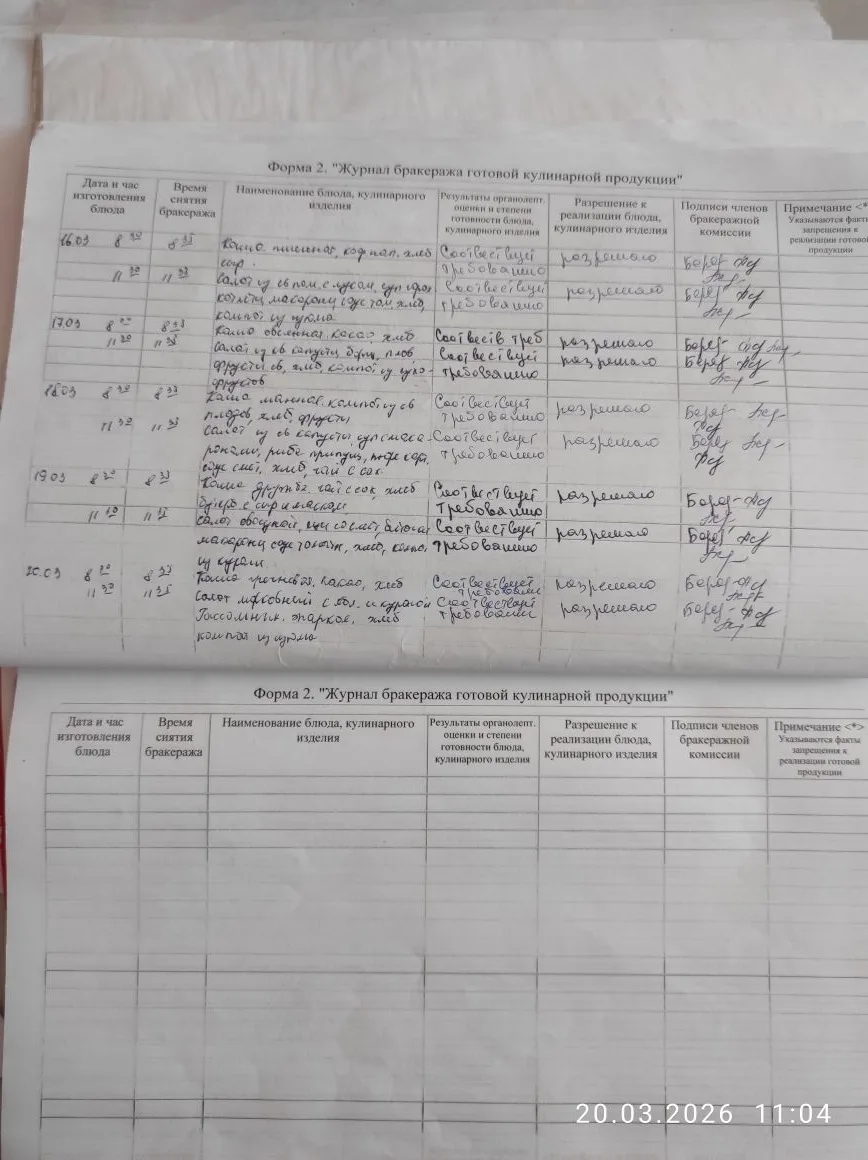 Форма 2. "Журнал бракеража готовой кулинарной продукции"
Дата и час изготовления блюда
Время снятия бракеража
Наименование блюда, кулинарного изделия
Результаты органолепт. оценки и степени готовности блюда, кулинарного изделия
Разрешение к реализации блюда, кулинарного изделия
Подписи членов бракеражной комиссии
Примечание <*
Указываются факты запрещения к реализации готовой продукции
16.03 8 30 8 35 Каша пшенная, коф нап. хлеб Соотвествует разрешаю
сыр. требованию
11 30 11 35 салат из св пом. с луком, суп Соотвествует разрешаю
котлеты, макароны соус том, хлеб, требованию
компот из изюма
17.03 8 30 8 35 Каша овсянная какао, хлеб Соотвеств треб разрешаю
11 30 11 35 салат из св капусты, борщ, плов Соотвествует разрешаю
фрукты св, хлеб, компот из сухо- требованию
фруктов
18.03 8 30 8 35 Каша манная, компот из св Соотвествует разрешаю
плодов, хлеб, фрукты требованию
11 30 11 35 салат из св капусты, суп с мака- Соотвествует разрешаю
ронами, рыба припущ, пюре карт, требованию
соус смет, хлеб, чай с сах
19.03 8 30 8 35 Каша дружба, чай с сах, хлеб Соотвествует разрешаю
бутерб с сыр и маслом требованию
11 30 11 35 салат овощной, щи со смет, Соотвествует разрешаю
макароны соус томатн, хлеб, компот требованию
из кураги
20.03 8 30 8 35 Каша гречневая, какао, хлеб Соотвествует требован разрешаю
11 30 11 35 Салат морковный с ябл. и курагой Соотвествует разрешаю
Рассольник, жаркое, хлеб требован
компот из изюма
Форма 2. "Журнал бракеража готовой кулинарной продукции"
Дата и час изготовления блюда
Время снятия бракеража
Наименование блюда, кулинарного изделия
Результаты органолепт. оценки и степени готовности блюда, кулинарного изделия
Разрешение к реализации блюда, кулинарного изделия
Подписи членов бракеражной комиссии
Примечание <*>
Указываются факты запрещения к реализации готовой продукции
20.03.2026 11:04